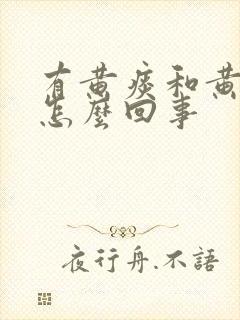 有黄痰和黄
怎麼回事
夜行舟.不語